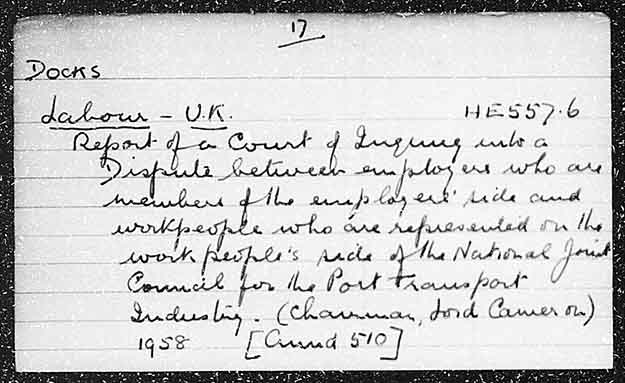 17
DOCKS
Labour - U.K. HE557.6
Report of a Court of Inquiry into a
Dispute between employers who are
members of the employers' side and
workpeople who are represented on the
workpeople's side of the National Joint
Council for the Port Transport
Industry. (Chairman, Lord Cameron)
1958 [Cmnd 510]